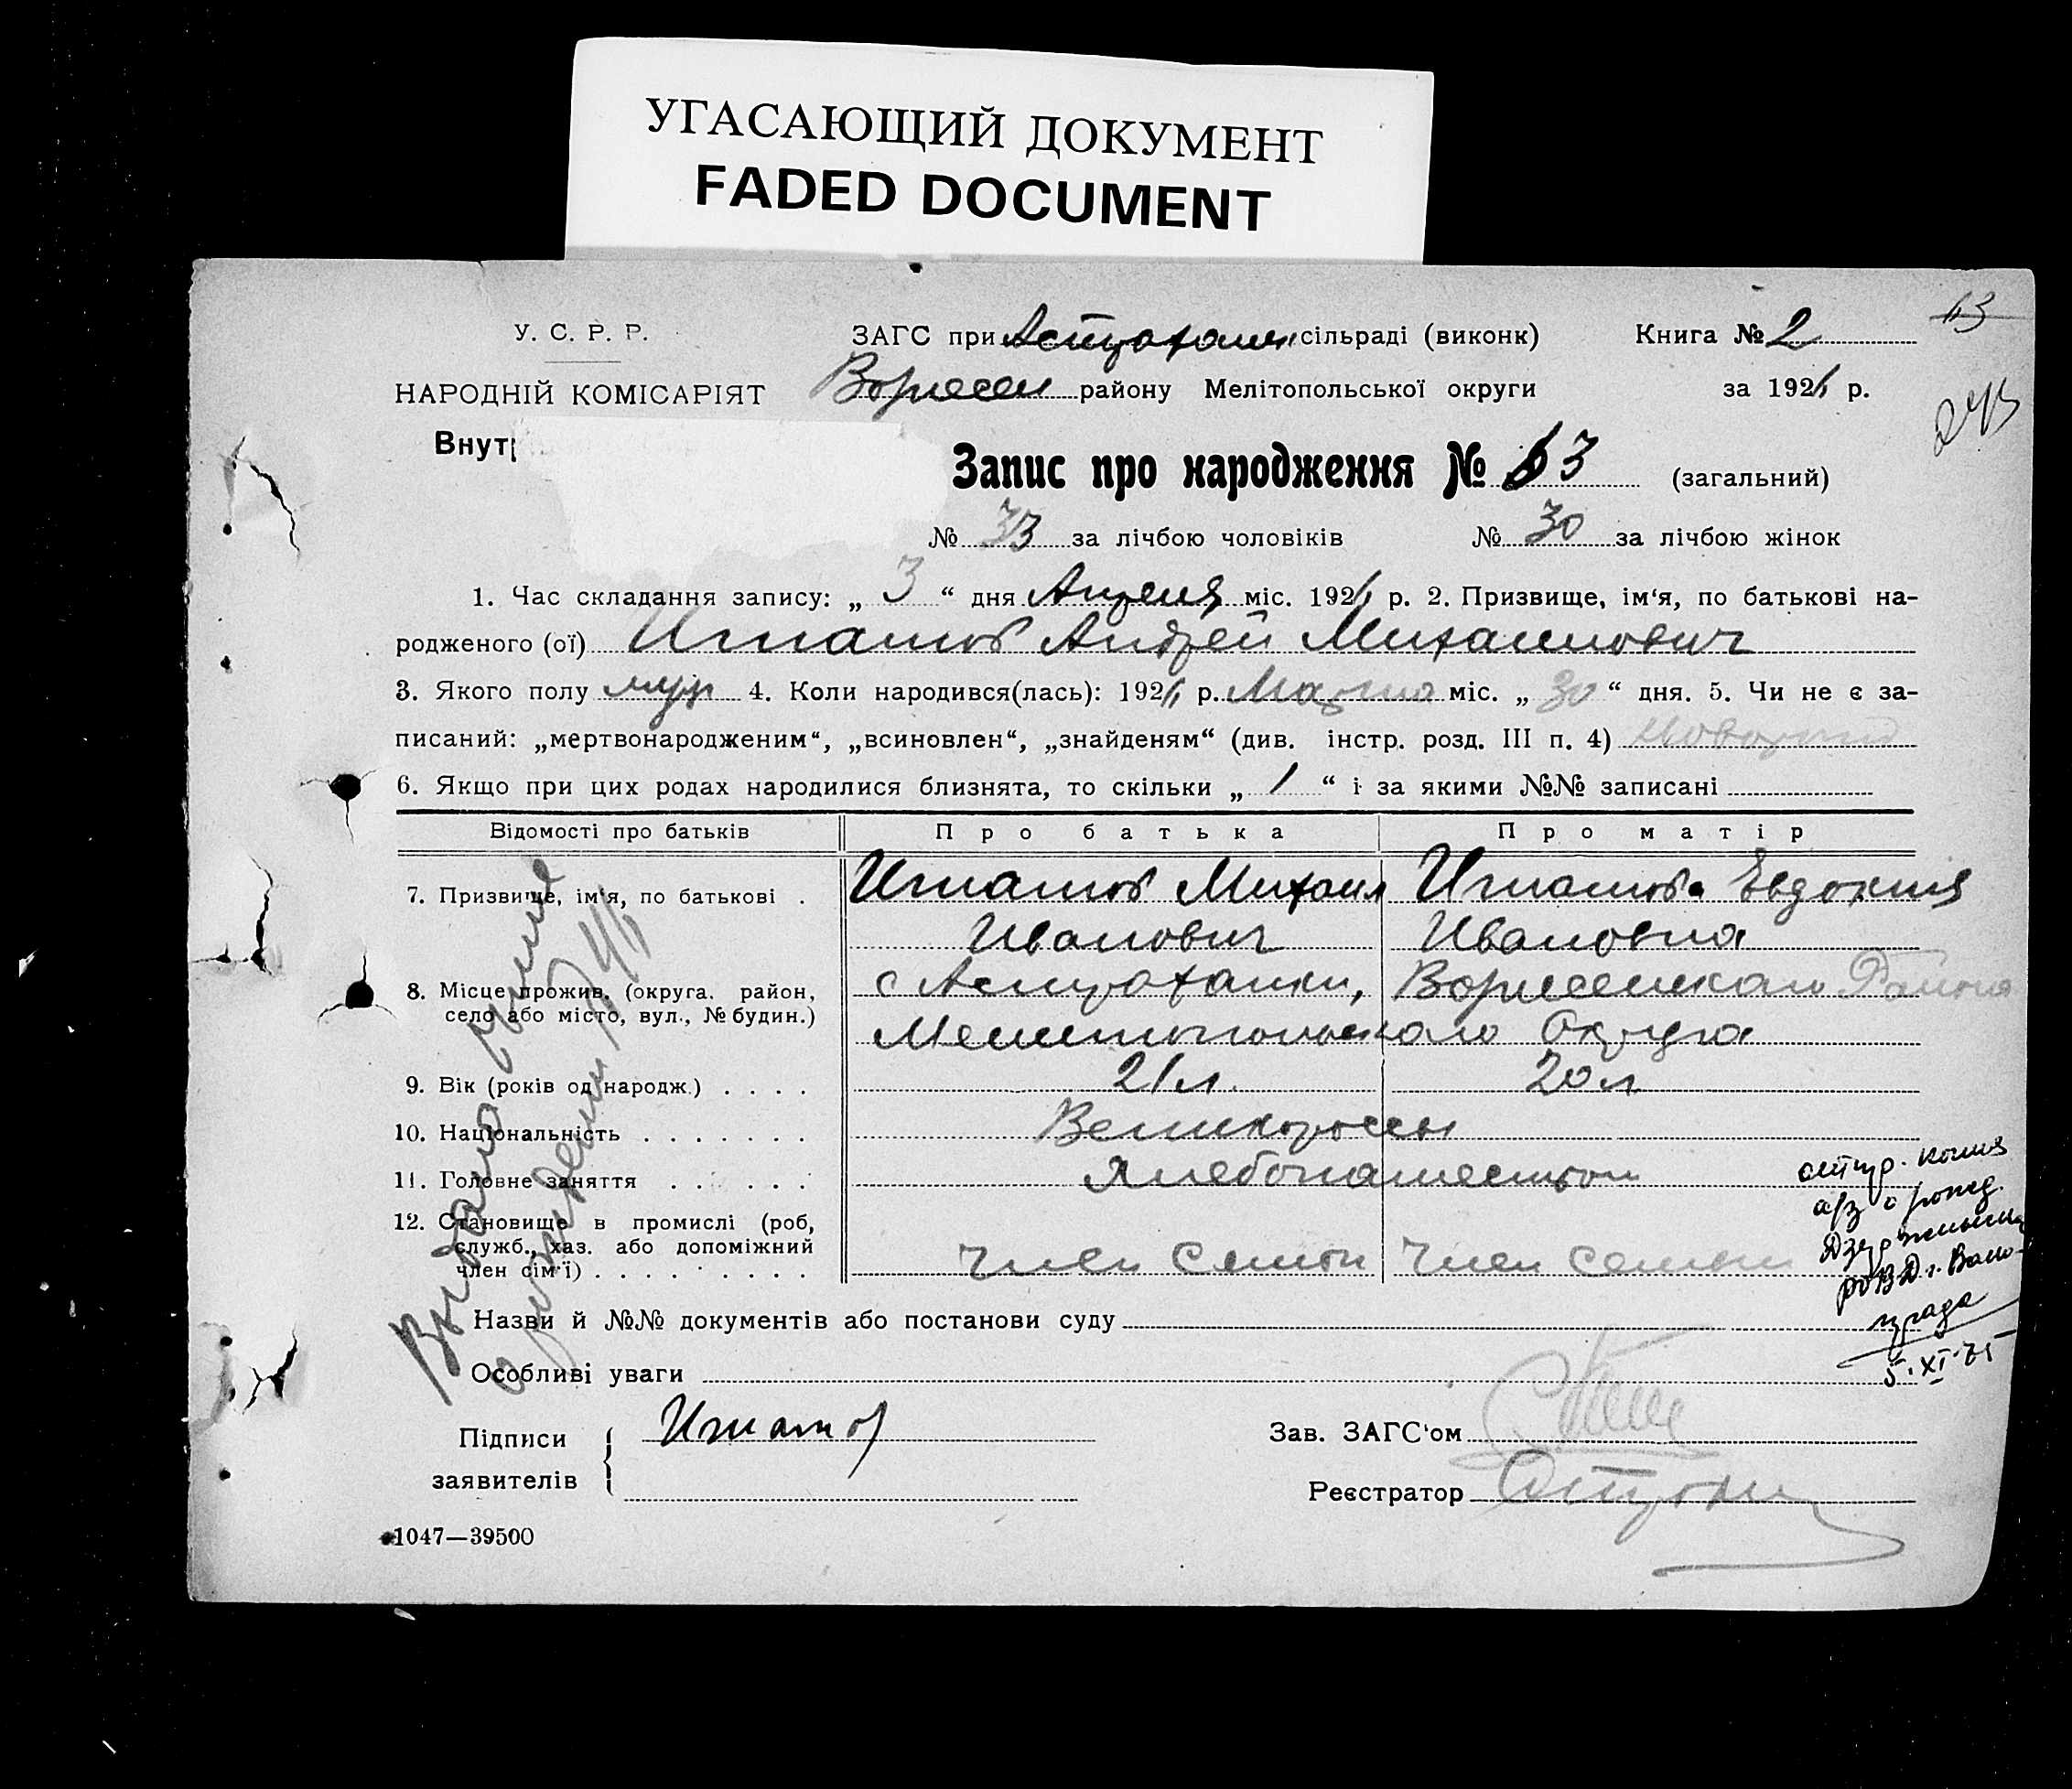 УГАСАЮЩИЙ ДОКУМЕНТ
FADED DOCUMENT
13
У. С. Р. Р.
ЗАГС при Астрахан сільраді (виконк)
Книга № 2
НАРОДНІЙ КОМІСАРІЯТ
района Мелітопольської округи
за 1926 р.
Внутр
243
Запис про народження № 63 (загальний)
№ 33 за лічбою чоловіків
№ 30 за лічбою жінок
1. Час складання запису: „ 3 “ дня Апреля міс. 1926 р. 2. Призвище, ім‘я, по батькові на-
родженого (ої) Игнатов Андрей Михаилович
3. Якого полу муж 4. Коли народився(лась): 1926 р. Марта міс. „ 30 “ дня. 5. Чи не є за-
писаний: „мертвонародженим“, „всиновлен“, „знайденям“ (див. інстр. розд. III п. 4)
6. Якщо при цих родах народилися близнята, то скільки „ 1 “ і за якими №№ записані
Відомості про батьків
Про батька
Про матір
7. Призвище, ім‘я, по батькові .
Игнатов Михаил
Игнатова Евдокия
Иванович
Ивановна
8. Місце прожив. (округа, район,
село або місто, вул., № будин.)
с Астраханки,
Района
Мелитопольского Округа
9. Вік (років од народж.) . . . .
21 л.
20 л
10. Національність . . . . . . .
Великороссы
11. Головне заняття . . . . . .
Хлебопашеством
12. Становище в промислі (роб,
служб., хаз. або допоміжний
член сім‘ї) . . . . . . . . .
Член семьи
Член семьи
Назви й №№ документів або постанови суду
Особливі уваги
Підписи
заявителів
Игнатов
Зав. ЗАГС‘ом
Реєстратор
1047—39500
Выдано
о рождении
отпр. копия
а/з о рожд.
Дзержинский
РОВД г. Волго-
града
5.XI.75